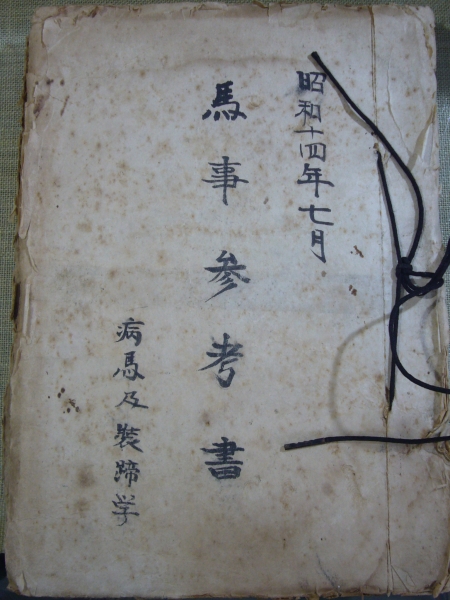 昭和十四年七月
馬事参考書
病馬及装蹄学